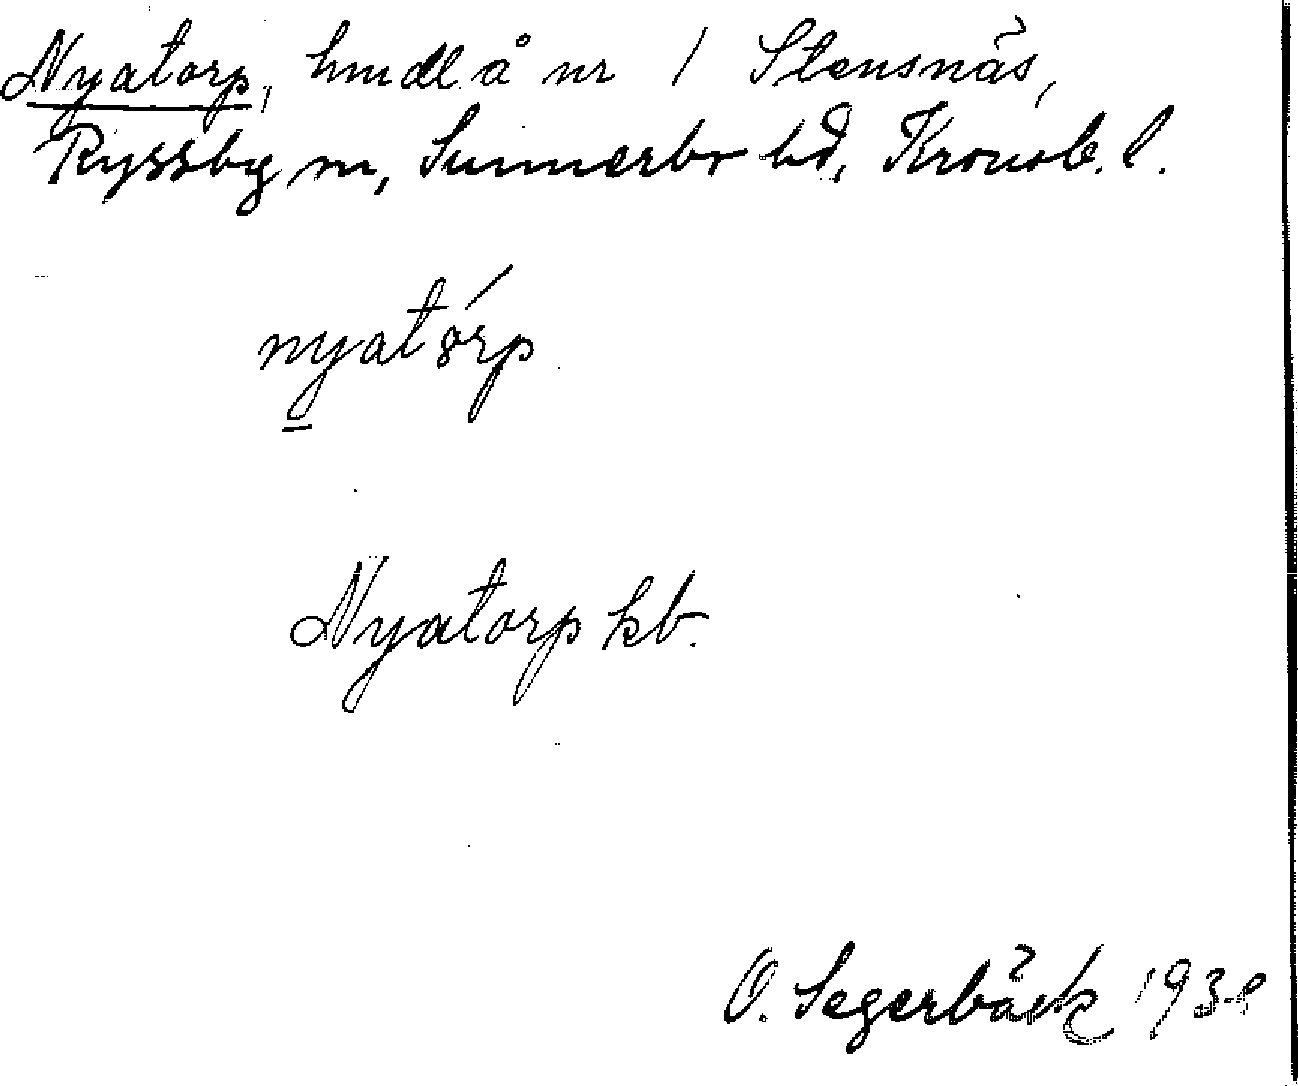 Nyatorp, hmdl å nr 1 Stensnäs,
Ryssby sn, Sunnerbo hd, Kronob. l.
nyatórp
Nyatorp kb.
O. Segerbäck